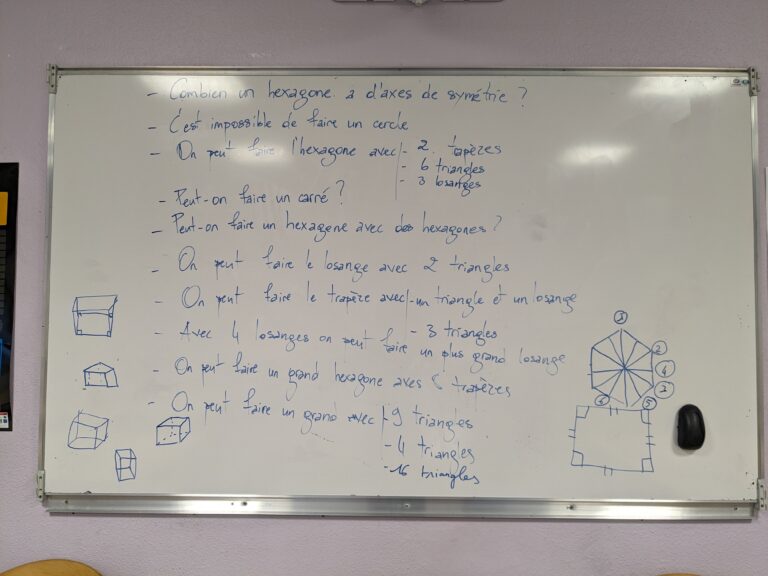 - Combien un hexagone a d'axes de symétrie ?
- C'est impossible de faire un cercle
- On peut faire l'hexagone avec - 2 tapèzes
- 6 triangles
- 3 losanges
- Peut-on faire un carré ?
- Peut-on faire un hexagone avec des hexagones ?
- On peut faire le losange avec 2 triangles
- On peut faire le trapèze avec - un triangle et un losange
- 3 triangles
- Avec 4 losanges on peut faire un plus grand losange
- On peut faire un grand hexagone avec trapèzes
- On peut faire un grand avec - 9 triangles
- 4 triangles
- 16 triangles
2
4
5